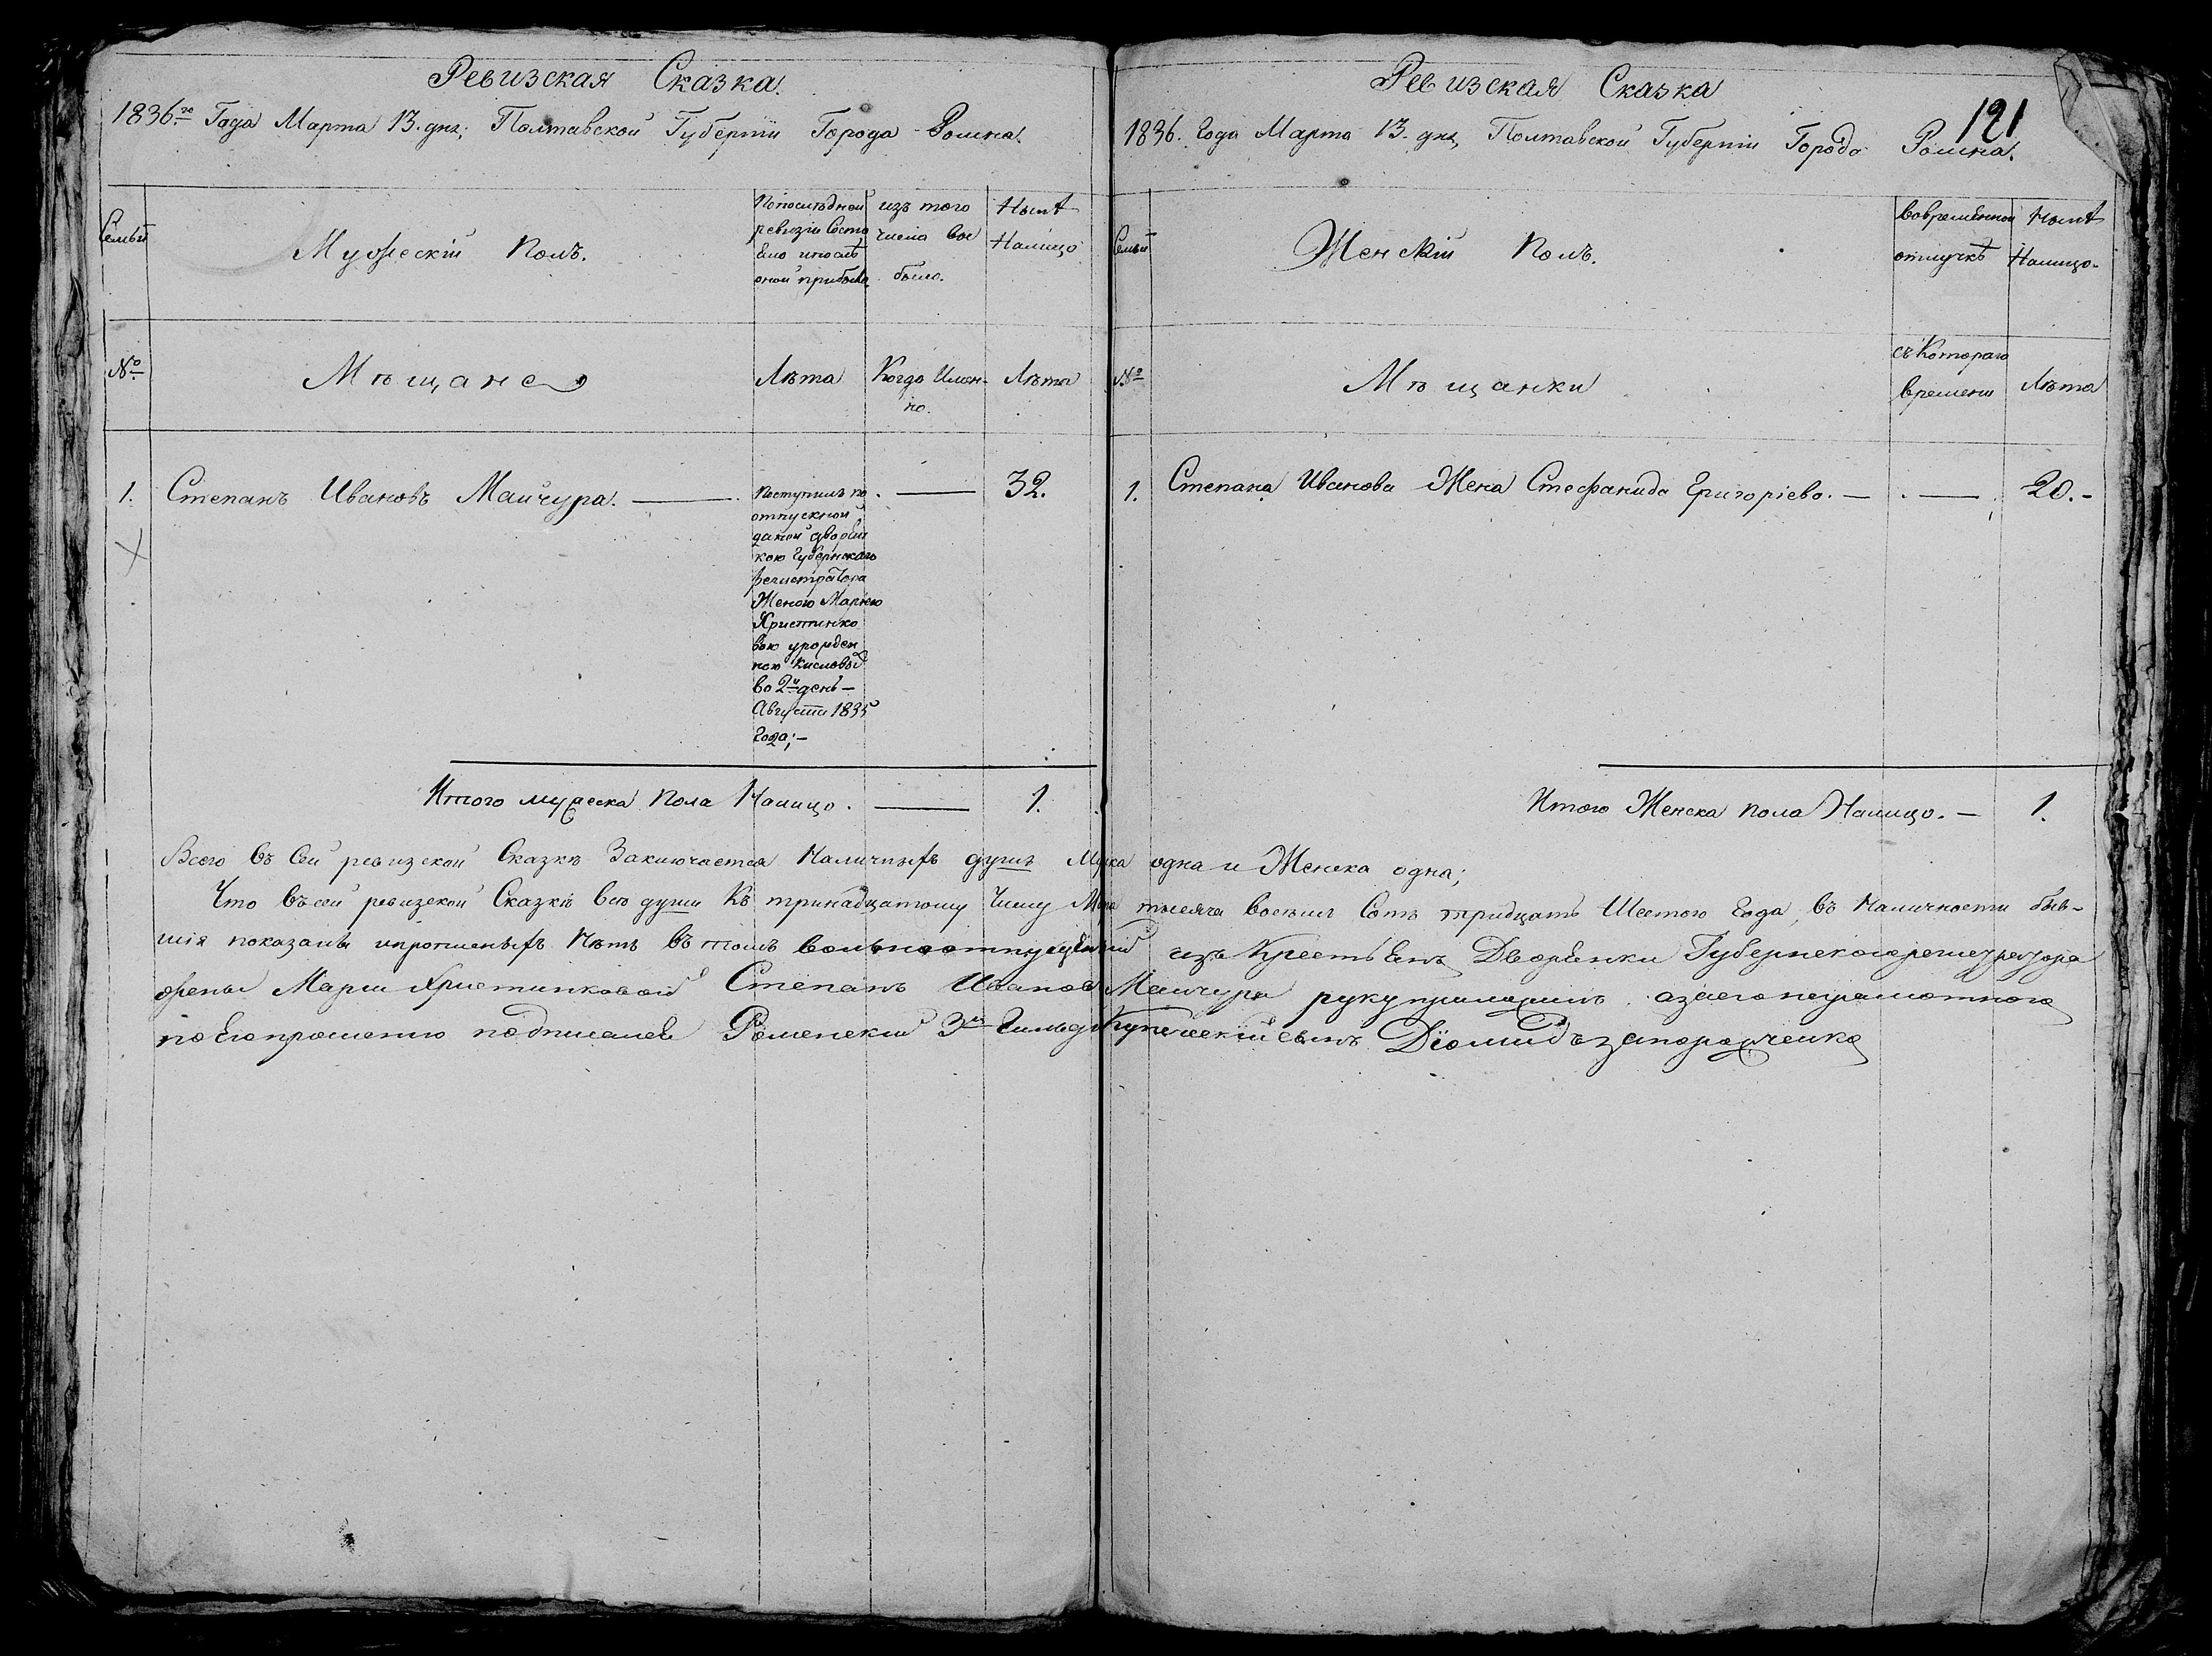 Ревизская Сказка.
1836го Года Марта 13. дня; Полтавской Губернии Города Ромна.
Семьи
Мужескій Полъ.
Попоследней
ревизіи Состо
яло ипосле
оной прибыло.
изъ того
числа вы
было.
Нынѣ
Налицо
№
Мѣщане
Лѣта
Когда Имен-
но.
Лѣта
1.
Степанъ Ивановъ Майчура.
Поступилъ по
отпускной
даной дворян
кою Губернскаго
регистратора
Женою Маріею
Христинко
вою урожден
ною Кисловой
во 2й день –
Августа 1835
Года; –
32.
Итого мужеска Пола Налицо. 1.
Ревизская Сказка
121
1836. Года Марта 13. дня, Полтавской Губерніи Города Ромна.
Семьи
Женскій Полъ.
вовременной
отлучкѣ
Нынѣ
Налицо.
№
Мѣщанки
съ Котораго
времени
Лѣта
1.
Степана Иванова Жена Стефанида Григоріева. – 20. –
Итого Женска пола Налицо. – 1.
Всего въ Сей ревизской Сказкѣ Заключается Наличныхъ душъ Мужска одна и Женска одна;
Что въсей ревизской Сказкѣ всѣ души Къ тринадцатому Числу Марта тысяча восемь Сотъ тридцать Шестого Года, въ Наличности быв-
шія показаны ипрописныхъ Нѣтъ въ томъ вольноотпущенный изъ Крестьянъ Дворянки Губернскогорегистратора
жены Маріи Христинковой Степанъ Иванов Майчура руку приложилъ. азаегонеграмотного
поЕгопрошенію подписался Роменский 3й Гильдіи Купеческій сынъ Діомидъ запорожченко